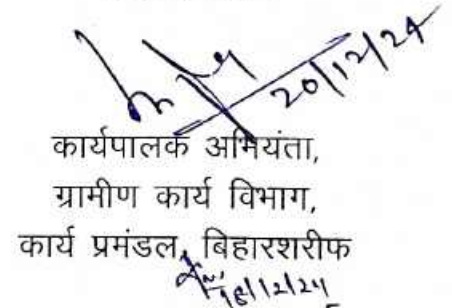 20/12/24
कार्यपालक अभियंता,
ग्रामीण कार्य विभाग,
कार्य प्रमंडल, बिहारशरीफ
18/12/24